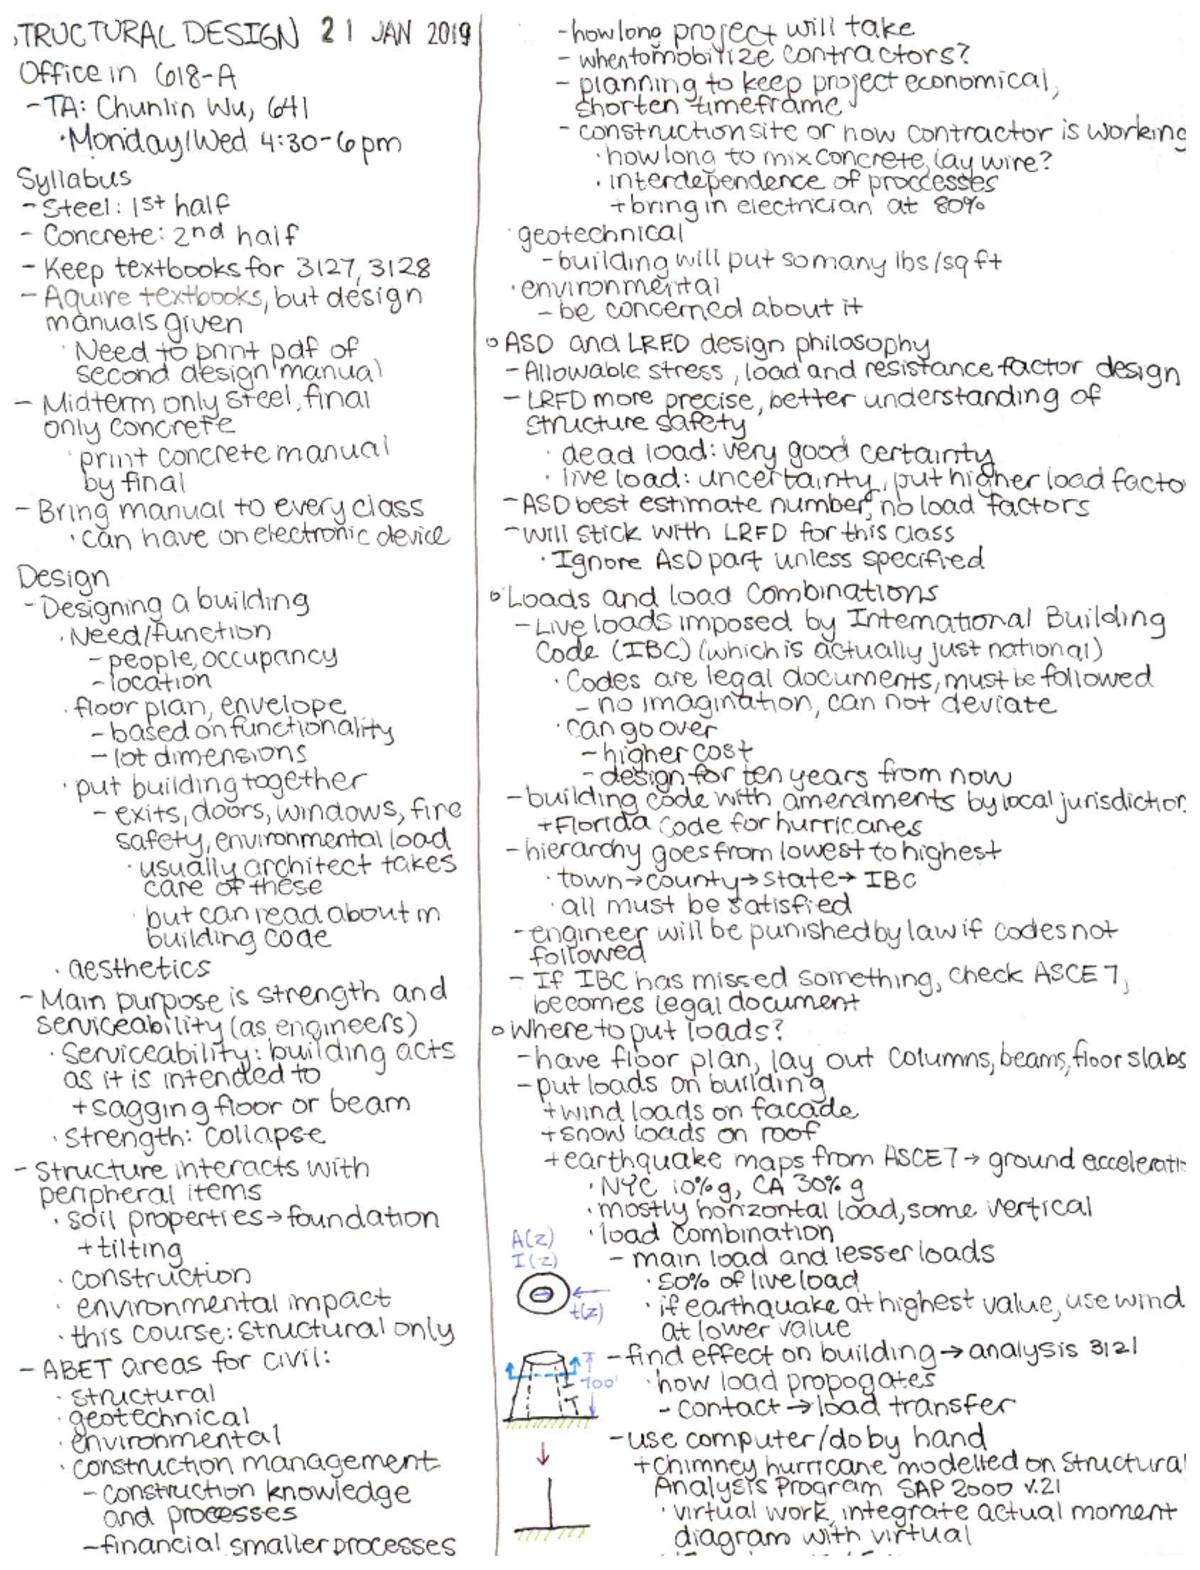 TRUCTURAL DESIGN 21 JAN 2019
Office in 618-A
- TA: Chunlin Wu, 641
· Monday/Wed 4:30-6pm
Syllabus
- Steel: 1st half
- Concrete: 2nd half
- Keep textbooks for 3127, 3128
- Aquire textbooks, but design
manuals given
· Need to print pdf of
second design manual
- Midterm only steel, final
only concrete
· print concrete manual
by final
- Bring manual to every class
· can have on electronic device
Design
- Designing a building
· Need/function
- people, occupancy
- location
· floor plan, envelope
- based on functionality
- lot dimensions
· put building together
- exits, doors, windows, fire
safety, environmental load
· usually architect takes
care of these
· but can read about in
building code
· aesthetics
- Main purpose is strength and
serviceability (as engineers)
· Serviceability: building acts
as it is intended to
+ sagging floor or beam
· Strength: collapse
- Structure interacts with
peripheral items
· soil properties → foundation
+ tilting
· construction
· environmental impact
· this course: structural only
- ABET areas for civil:
· structural
· geotechnical
· environmental
· construction management
- construction knowledge
and processes
- financial smaller processes
- how long project will take
- when to mobilize contractors?
- planning to keep project economical,
shorten timeframe
- construction site or how contractor is working
· how long to mix concrete, lay wire?
· interdependence of proccesses
+ bring in electrician at 80%
· geotechnical
- building will put so many lbs/sq ft
· environmental
- be concerned about it
o ASD and LRFD design philosophy
- Allowable stress, load and resistance factor design
- LRFD more precise, better understanding of
structure safety
· dead load: very good certainty
· live load: uncertainty, put higher load facto
- ASD best estimate number, no load factors
- will stick with LRFD for this class
· Ignore ASD part unless specified
o Loads and load combinations
- Live loads imposed by International Building
Code (IBC) (which is actually just national)
· Codes are legal documents, must be followed
- no imagination, can not deviate
· can go over
- higher cost
- design for ten years from now
- building code with amendments by local jurisdiction
+ Florida Code for hurricanes
- hierarchy goes from lowest to highest
· town → county → state → IBC
· all must be satisfied
- engineer will be punished by law if codes not
followed
- If IBC has missed something, check ASCE 7,
becomes legal document
o Where to put loads?
- have floor plan, lay out columns, beams, floor slabs
- put loads on building
+ wind loads on facade
+ snow loads on roof
+ earthquake maps from ASCE 7 → ground accelerati
· NYC 10% g, CA 30% g
· mostly horizontal load, some vertical
· load combination
A(z)
I(z)
t(z)
- main load and lesser loads
· 50% of live load
· if earthquake at highest value, use wind
at lower value
700'
- find effect on building → analysis 3121
· how load propogates
- contact → load transfer
- use computer/do by hand
+ chimney hurricane modelled on Structural
Analysis Program SAP 2000 v.21
· virtual work, integrate actual moment
diagram with virtual